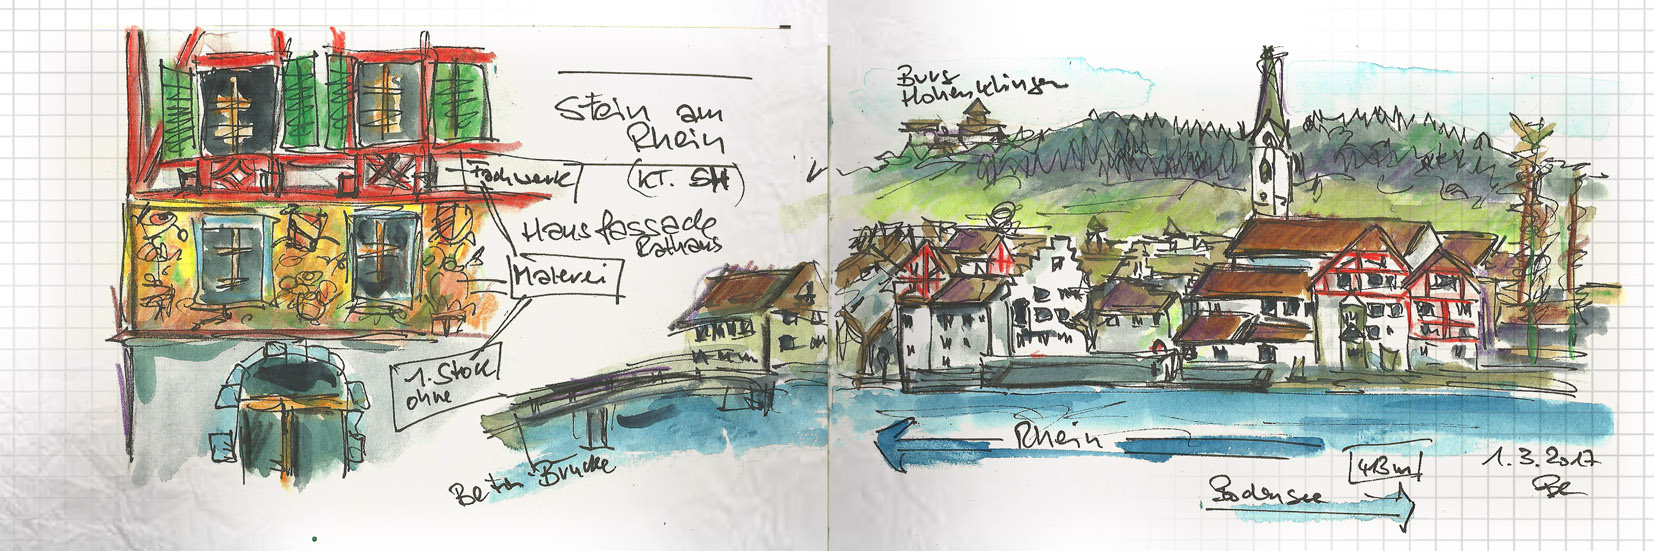 Stein am
Rhein
(KT. SH)
Fachwerk
Hausfassade
Rathaus
Malerei
1. Stock
ohne
Beton Brücke
Burg
Hohenklingen
Rhein
413 m
Bodensee
1.3.2017